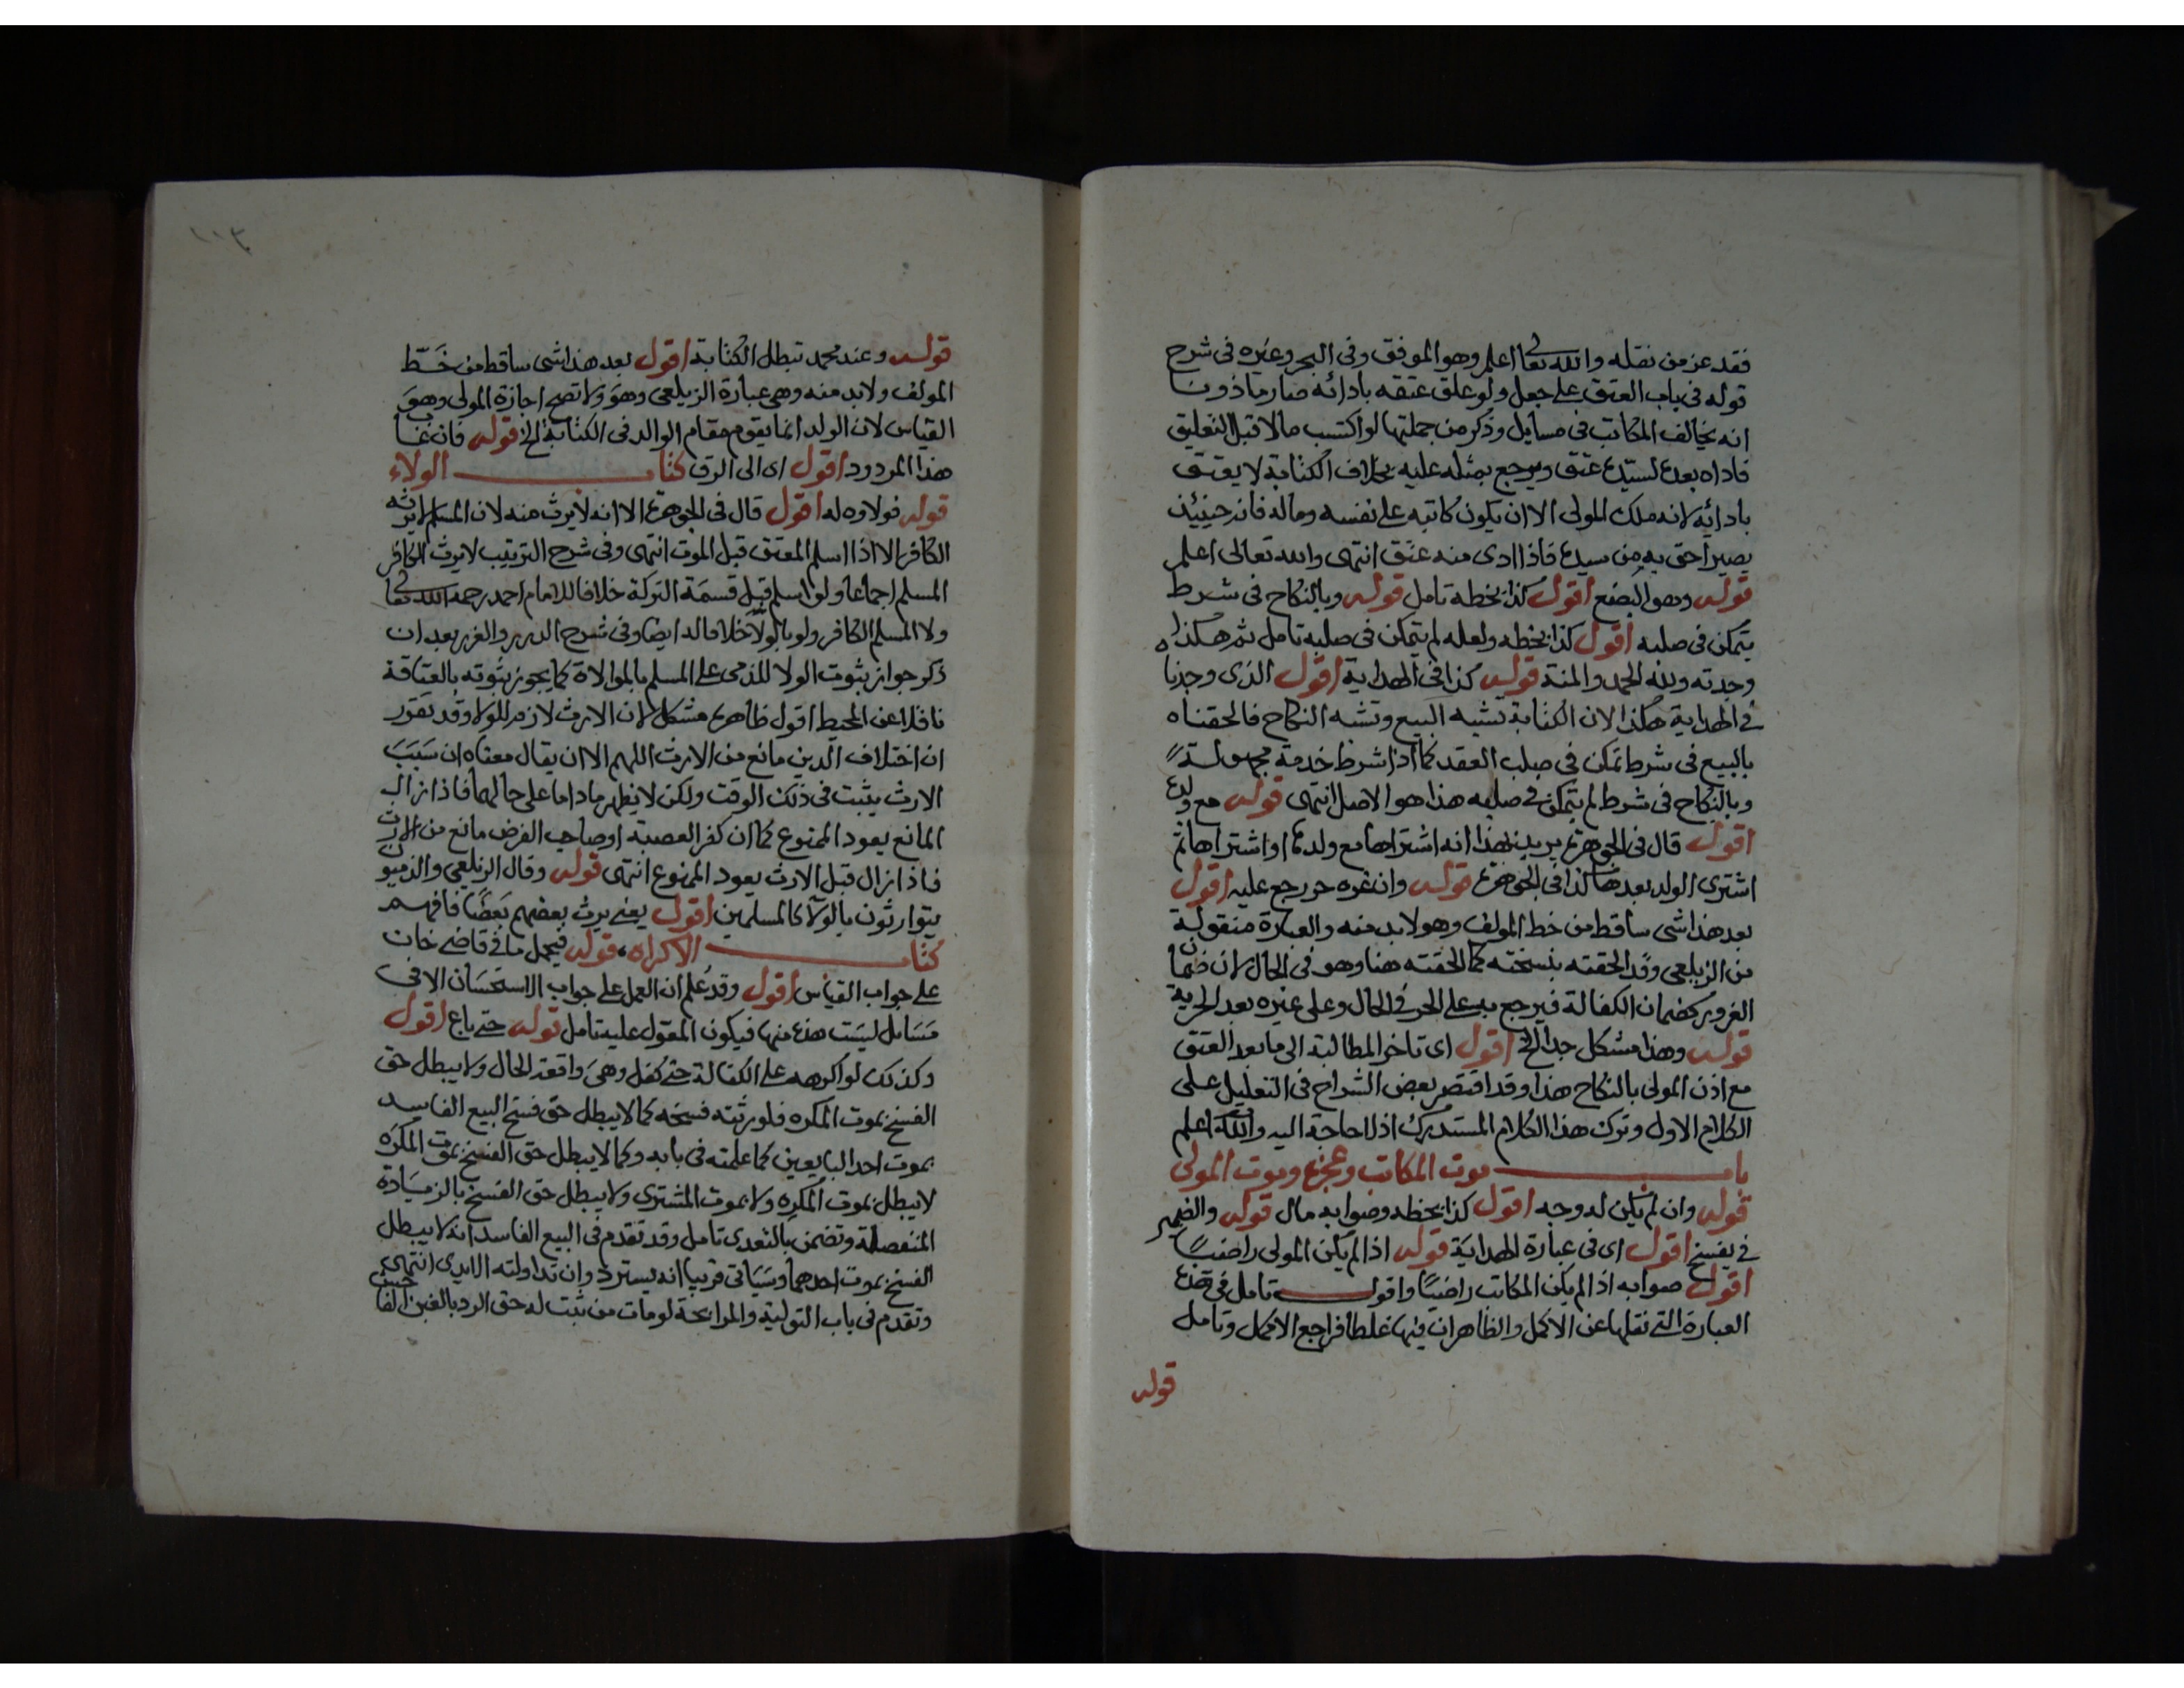 فقد عز من نقله والله تعالى اعلم وهو الموفق وفى البحر وغيره فى شرح
قوله فى باب العتق على جعل ولو علق عتقه بادائه صار ماذونا
انه يخالف المكاتب فى مسايل وذكر من جملتها لو اكتسب مالا قبل التعليق
فاداه بعده لسيده عتق ويرجع بمثله عليه بخلاف الكتابة لا يعتق
بادائه لانه ملك المولى الا ان يكون كاتبه على نفسه وماله فانه حينئذ
يصير احق به من سيده فاذا ادى منه عتق انتهى والله تعالى اعلم
قوله وهو البضع اقول كذا بخطه تامل قوله وبالنكاح فى شرط
يتمكن فى صلبه اقول كذا بخطه ولعله لم يتمكن فى صلبه تامل ثم هكذا
وجدته ولله الحمد والمنة قوله كذا فى الهداية اقول الذى وجدنا
فى الهداية هكذا لان الكتابة تشبه البيع وتشبه النكاح فالحقناه
بالبيع فى شرط تمكن فى صلب العقد كما اذا شرط خدمة مجهولة
وبالنكاح فى شرط لم يتمكن فى صلبه هذا هو الاصل انتهى قوله مع ولده
اقول قال فى الجوهرة يريد بهذا انه اشتراها مع ولدها او اشتراها ثم
اشترى الولد بعدها كذا فى الجوهرة قوله وان غره حر رجع عليه اقول
بعد هذا شى ساقط من خط المولف وهو لا بد منه والعبارة منقولة
من الزيلعى وقد الحقته بنسخته كما الحقته هنا وهو فى الحال لان ضمان
الغرور كضمان الكفالة فيرجع به على الحر فى الحال وعلى غيره بعد الحرية
قوله وهذا مشكل جدا الخ اقول اى تاخر المطالبة الى ما بعد العتق
مع اذن المولى بالنكاح هذا وقد اقتصر بعض الشراح فى التعليل على
الكلام الاول وترك هذا الكلام المستدرك اذ لا حاجة اليه والله اعلم
باب موت المكاتب وعجزه وموت المولى
قوله وان لم يكن له وجه اقول كذا بخطه وصوابه مال قوله والضمير
فى يفسخ اقول اى فى عبارة الهداية قوله اذا لم يكن المولى راضيا
اقول صوابه اذا لم يكن المكاتب راضيا واقول تامل فى هذه
العبارة التى نقلها عن الاكمل والظاهر ان فيها غلطا فراجع الاكمل وتامل
قوله
١٠٣
قوله وعند محمد تبطل الكتابة اقول بعد هذا شى ساقط من خط
المولف ولا بد منه وهى عبارة الزيلعى وهو ولا تصح اجازة المولى وهو
القياس لان الولد انما يقوم مقام الوالد فى الكتابة الخ قوله فان
هذا المردود اقول اى الى الرق كتاب الولاء
قوله فولاوه له اقول قال فى الجوهرة الا انه لا يرث منه لان المسلم لا يرثه
الكافر الا اذا اسلم المعتق قبل الموت انتهى وفى شرح الترتيب لا يرث الكافر
المسلم اجماعا ولو اسلم قبل قسمة التركة خلافا للامام احمد رحمه الله تعالى
ولا المسلم الكافر ولو بالولا خلافا له ايضا وفى شرح الدرر والغرر بعد ان
ذكر جواز ثبوت الولا للذمى على المسلم بالموالاة كما يجوز ثبوته بالعتاقة
ناقلا عن المحيط اقول ظاهره مشكل لان الارث لازم للولا وقد تقرر
ان اختلاف الدين مانع من الارث اللهم الا ان يقال معناه ان سبب
الارث يثبت فى ذلك الوقت ولكن لا يظهر ما داما على حالهما فاذا زال
المانع يعود الممنوع كما ان كفر العصبة او صاحب الفرض مانع من الارث
فاذا زال قبل الارث يعود الممنوع انتهى قوله وقال الزيلعى والذميون
يتوارثون بالولا كالمسلمين اقول يعنى يرث بعضهم بعضا فافهم
كتاب الاكراه قوله فيحمل ما فى قاضى خان
على جواب القياس اقول وقد علم ان العمل على جواب الاستحسان الا فى
مسايل ليست هذه منها فيكون المعول عليه تامل قوله حتى باع اقول
وكذلك لو اكرهه على الكفالة حتى كفل وهى واقعة الحال ولا يبطل حق
الفسخ بموت المكره فلورثته فسخه كما لا يبطل حق فسخ البيع الفاسد
بموت احد البايعين كما علمته فى بابه وكما لا يبطل حق الفسخ بموت المكره
لا يبطل بموت المكره ولا بموت المشترى ولا يبطل حق الفسخ بالزيادة
المنفصلة وتضمن بالتعدى تامل وقد تقدم فى البيع الفاسد انه لا يبطل
الفسخ بموت احدهما وسياتى قريبا انه يسترد وان تداولته الايدى انتهى
وتقدم فى باب التولية والمرابحة لو مات من ثبت له حق الرد بالغبن الفاحش